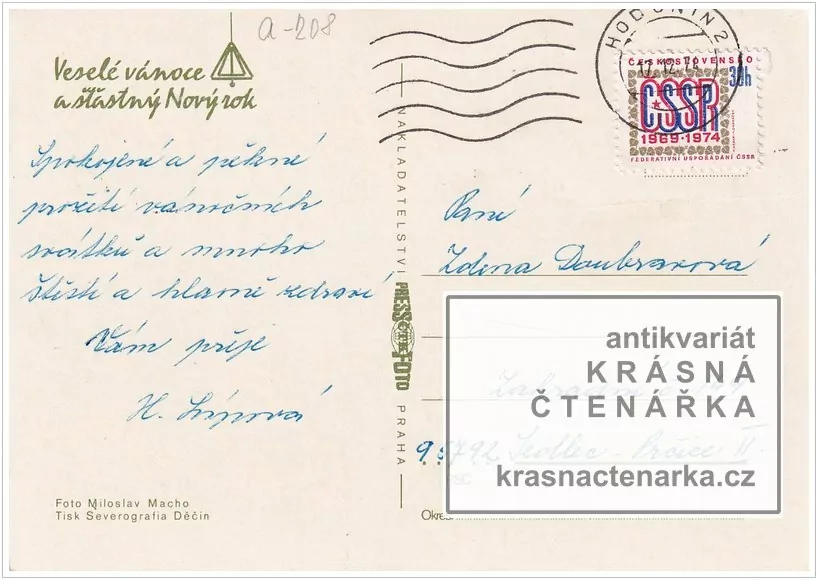 a-208
Veselé vánoce
a šťastný Nový rok
Spokojené a pěkné
prožití vánočních
svátků a mnoho
štěstí a hlavně zdraví
Vám přeje
H.
Foto Miloslav Macho
Tisk Severografia Děčín
NAKLADATELSTVÍ
PRESSFOTO
PRAHA
HODONÍN 2
ČESKOSLOVENSKO
30h
ČSSR
1969·1974
FEDERATIVNÍ USPOŘÁDÁNÍ ČSSR
Paní
Zdena Doubravová
antikvariát
KRÁSNÁ
ČTENÁŘKA
krasnactenarka.cz
Okres